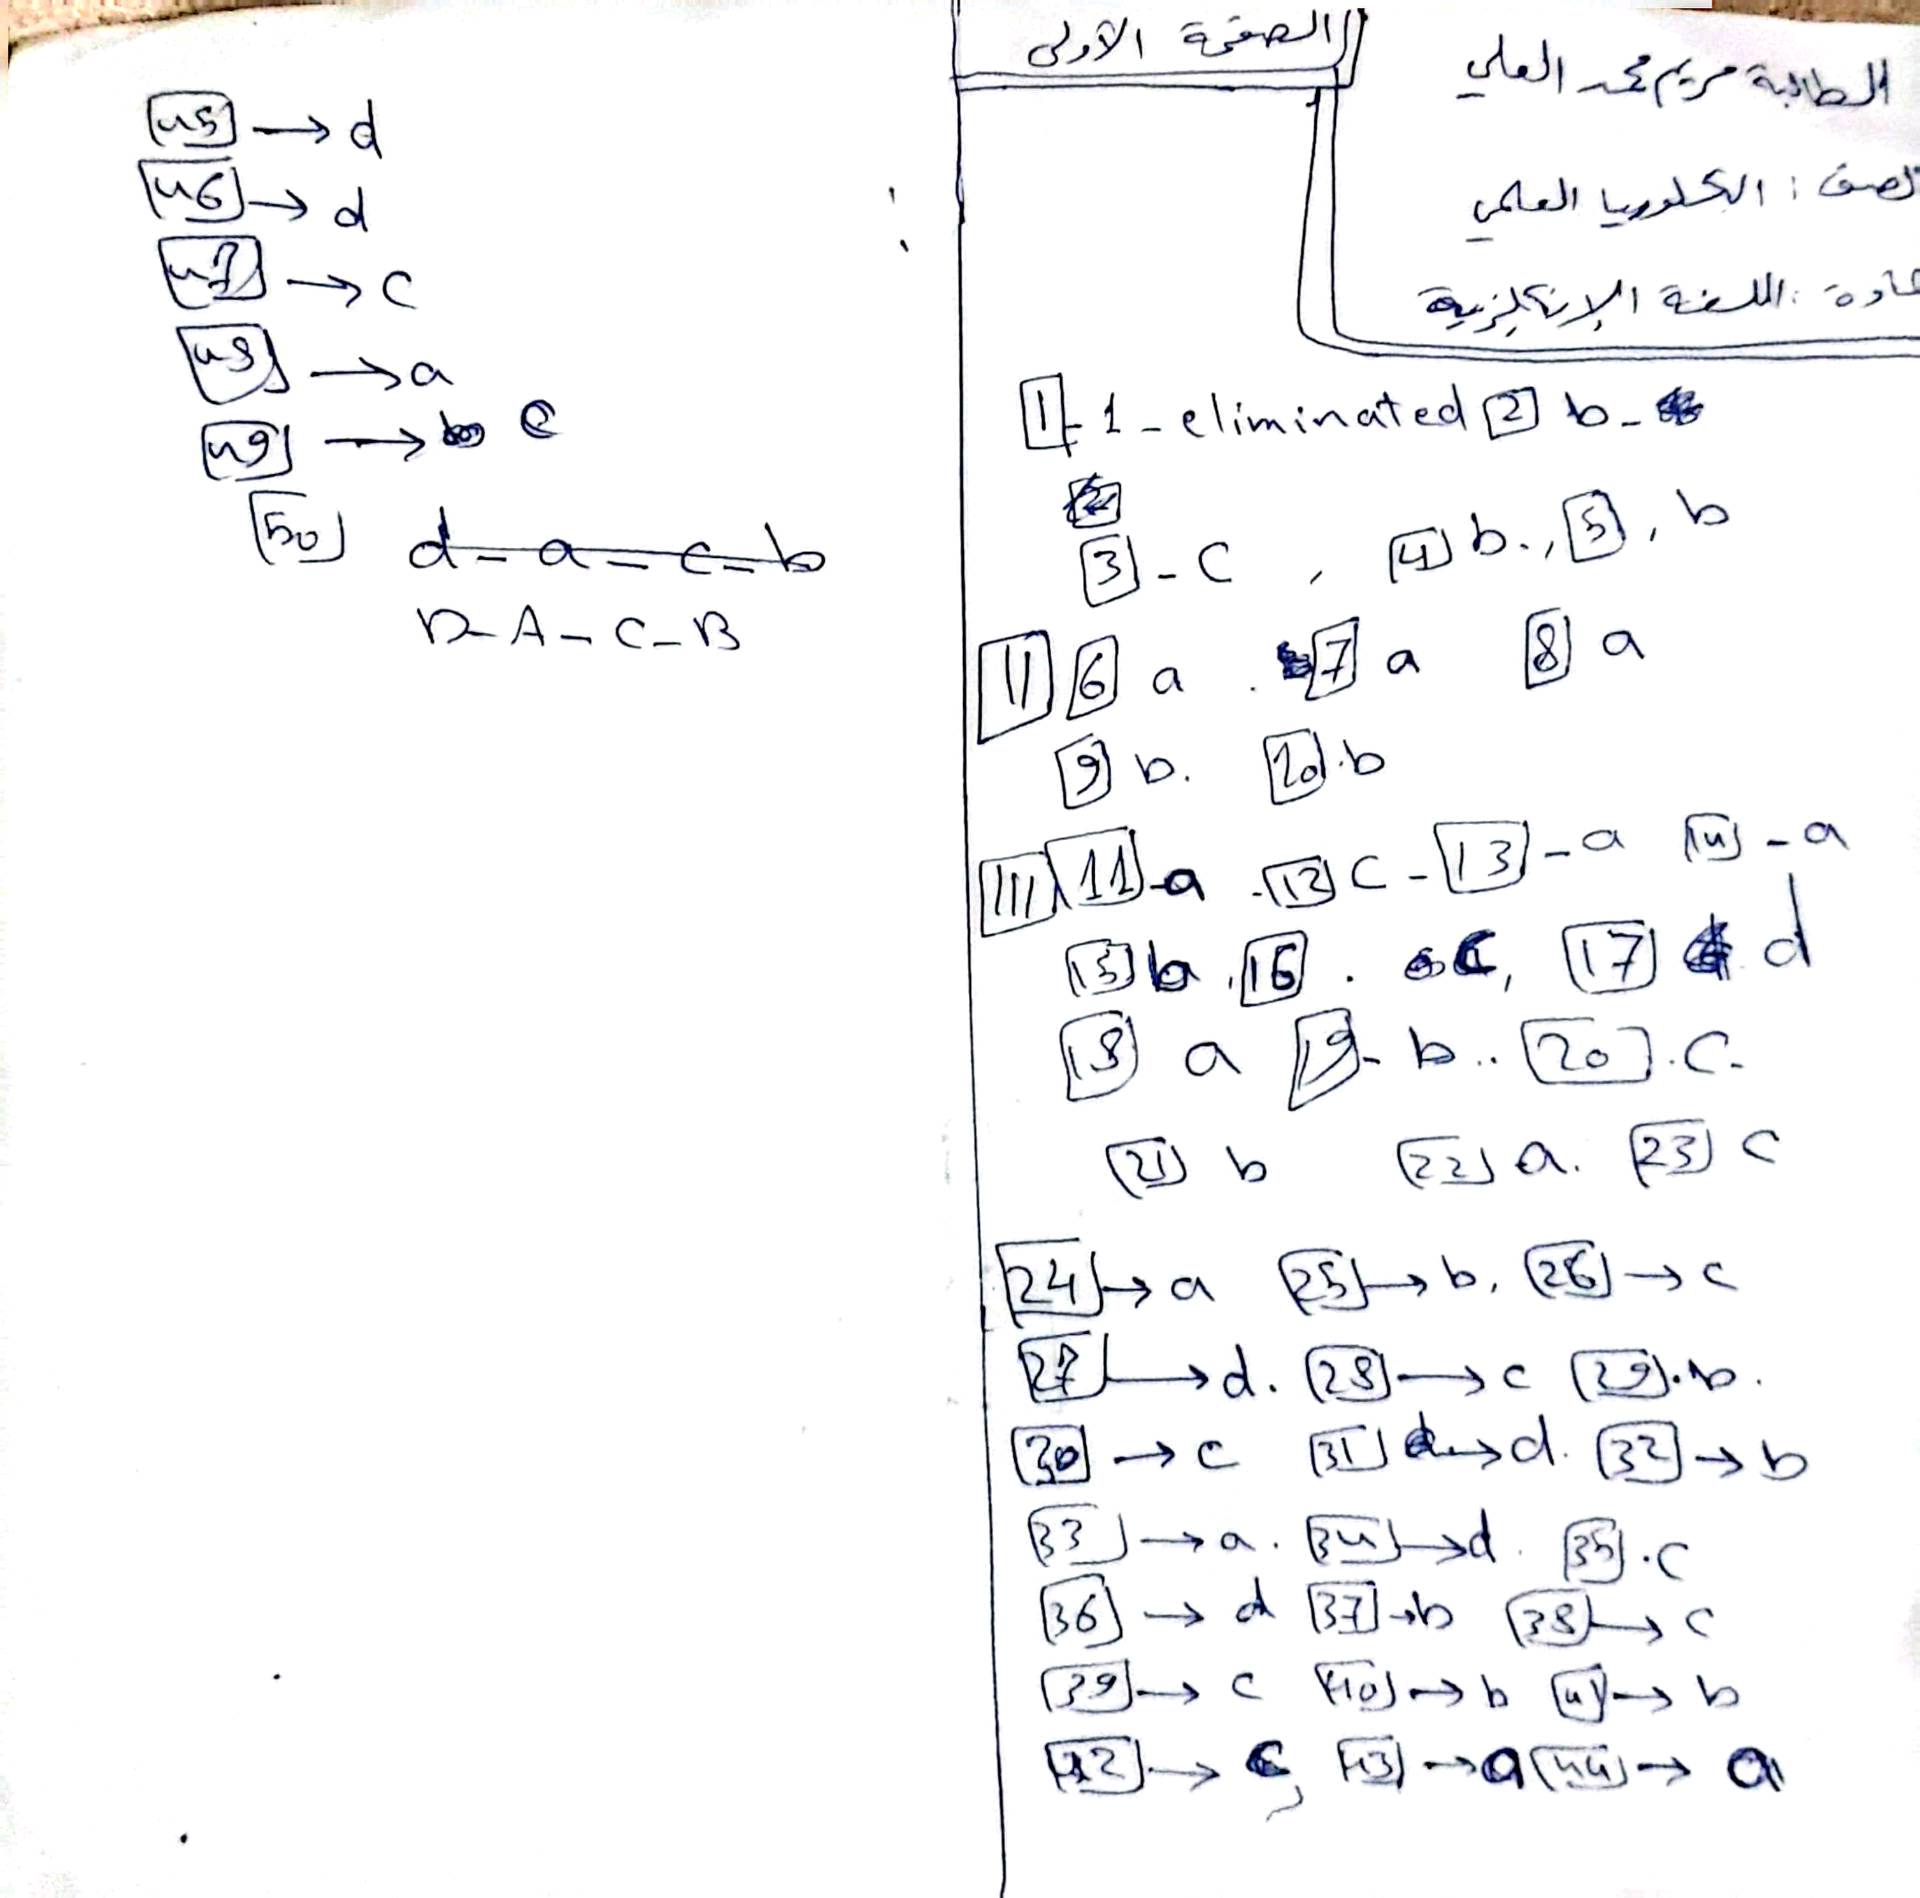 الصفحة الأولى
الطالبة مريم محمد العلي
الصف : البكلوريا العلمي
المادة : اللغة الإنكليزية
I - 1 - eliminated 2 b -
3 - c , 4 b . , 5 , b
II 6 a . 7 a 8 a
9 b . 10 . b
III 11 - a - 12 c - 13 - a 14 - a
15 b , 16 . c , 17 d
18 a 19 - b .. 20 . c -
21 b 22 a . 23 c
24 → a 25 → b , 26 → c
27 → d . 28 → c 29 . b .
30 → c 31 → d . 32 → b
33 → a . 34 → d . 35 . c
36 → d 37 → b 38 → c
39 → c 40 → b 41 → b
42 → c , 43 → a 44 → a
45 → d
46 → d
47 → c
48 → a
49 → c
50 d - a - c - b
D - A - C - B